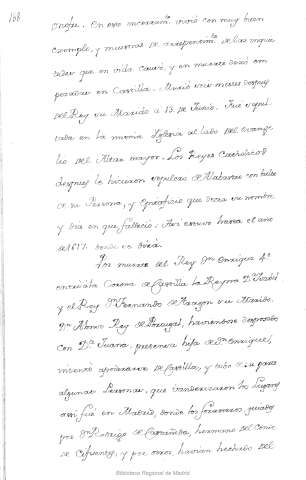 168
onesta. En este encerramto. vivió con muy buen
exemplo, y muestras de arrepentimto. de las inquie
tudes que en vida causó, y en muerte dexó em
peradas en Castilla. Murió seis meses despues
del Rey su Marido a 13 de Junio. Fue sepul
tada en la misma Iglesia al lado del evange
lio del Altar mayor. Los Reyes Catholicos
despues le hicieron sepulcro de Alabastro con bulto
de su Persona, y Epitafio que decia su nombre
y dia en que fallecio. Asi estuvo hasta el año
de 1617. donde se dirá.
Por muerte del Rey Dn. Enrique 4º
entró á la Corona de Castilla la Reyna Dª. Isabel
y el Rey Dn. Fernando de Aragon su Marido.
Dn. Alonso Rey de Portugal, haviendose desposado
con Dª. Juana, pretensa hija de Dn. Enrique,
intentó apoderarse de Castilla, y tubo de su parte
algunas Personas, que vanderizaron los Lugares
assi fué en Madrid, donde los forasteros, guiados
por Dn. Rodrigo de Castañeda, hermano del Conde
de Cifuentes, y por otros havian hechado del
Biblioteca Regional de Madrid